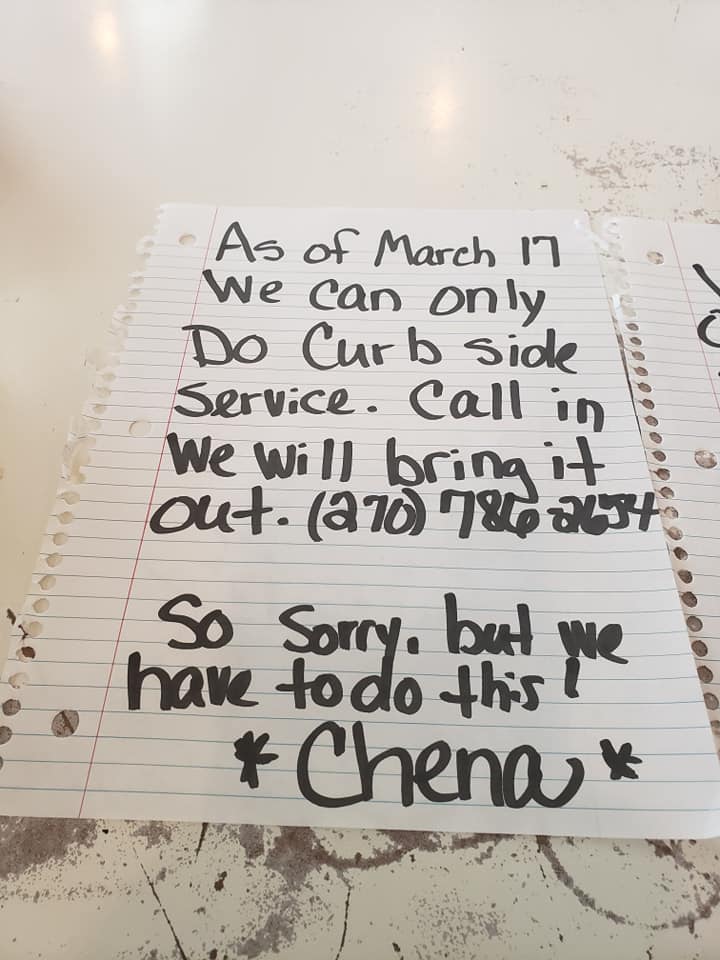 As of March 17
We can only
Do Curb side
Service. Call in
We will bring it
out. (270) 786-2654
So Sorry. but we
have to do this!
* Chena *